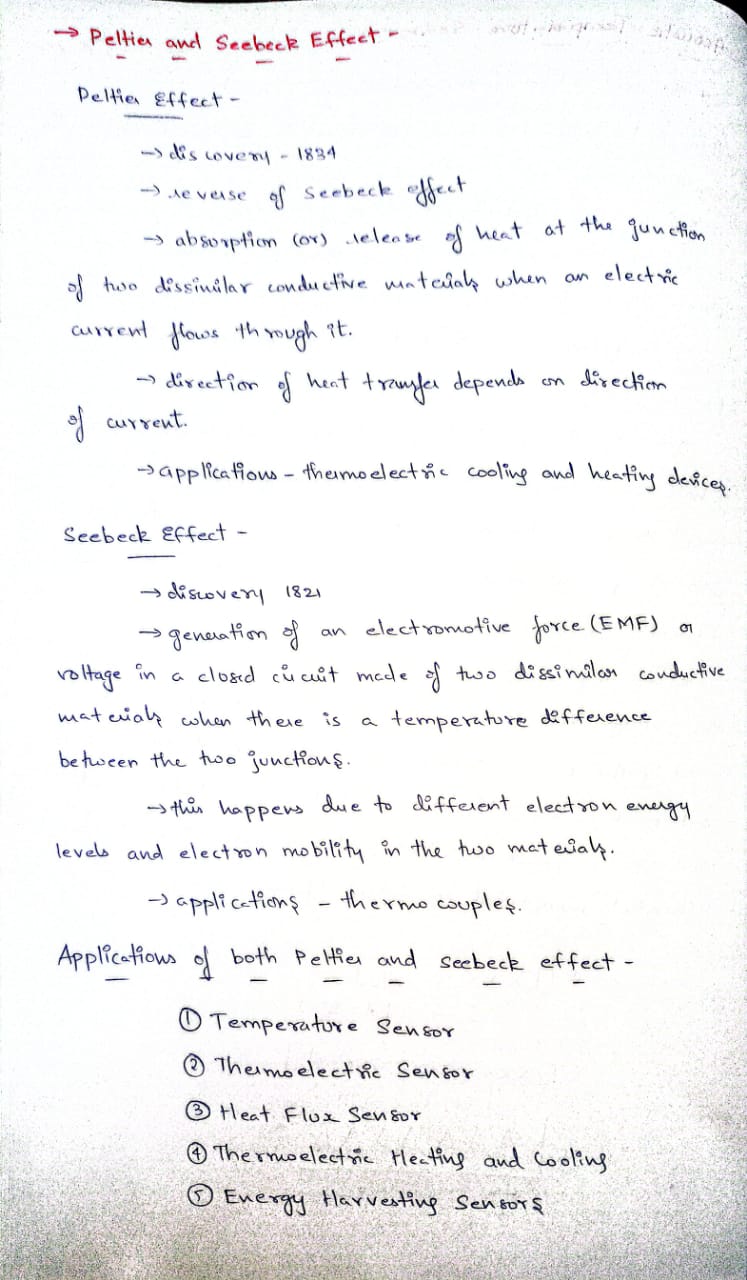 → Peltier and Seebeck Effect -
Peltier Effect -
→ discovery - 1834
→ reverse of Seebeck effect
→ absorption (or) release of heat at the junction
of two dissimilar conductive materials when an electric
current flows through it.
→ direction of heat transfer depends on direction
of current.
→ applications - thermoelectric cooling and heating devices.
Seebeck Effect -
→ discovery 1821
→ generation of an electromotive force (EMF) or
voltage in a closed circuit made of two dissimilar conductive
materials when there is a temperature difference
between the two junctions.
→ this happens due to different electron energy
levels and electron mobility in the two materials.
→ applications - thermo couples.
Applications of both Peltier and seebeck effect -
① Temperature Sensor
② Thermoelectric Sensor
③ Heat Flux Sensor
④ Thermoelectric Heating and Cooling
⑤ Energy Harvesting Sensors